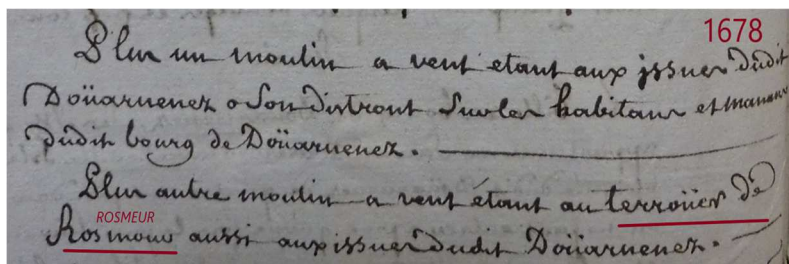 1678
Plus un moulin a vent etant aux issues dudit
Doüarnenez o son distroit sur les habitans et manans
dudit bourg de Doüarnenez.
Plus autre moulin a vent étant au terroüer de
ROSMEUR
Rosmeur aussi aux issues dudit Doüarnenez.